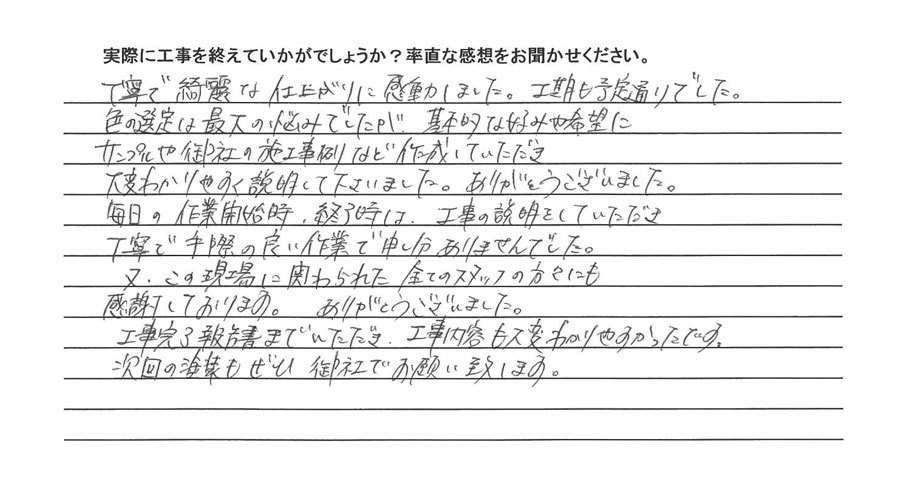 実際に工事を終えていかがでしょうか？率直な感想をお聞かせください。
丁寧で綺麗な仕上がりに感動しました。工期も予定通りでした。
色の選定は最大の悩みでしたが、基本的な好みや希望に
サンプルや御社の施工事例など作成していただき
大変わかりやすく説明して下さいました。ありがとうございました。
毎日の作業開始時、終了時は、工事の説明をしていただき
丁寧で手際の良い作業で申し分ありませんでした。
又、この現場に関わられた全てのスタッフの方々にも
感謝しております。ありがとうございました。
工事完了報告書までいただき、工事内容も大変わかりやすかったです。
次回の塗装もぜひ御社でお願い致します。